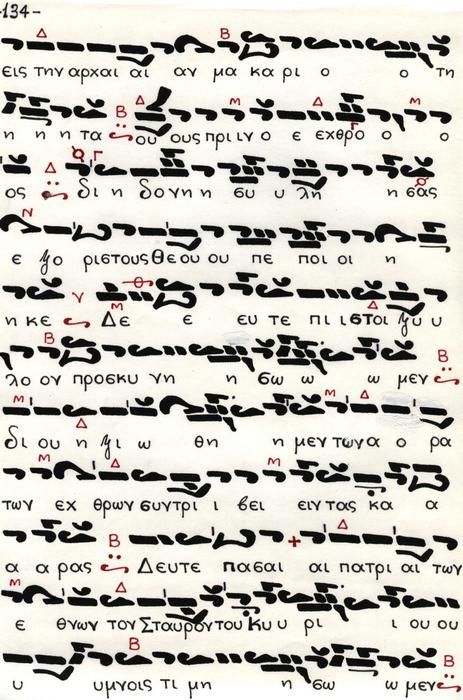 -134-
εις την αρχαι αι αν μα κα ρι ο ο τη
η η η τα ου ους πρι ιν ο ε εχθρο ο ο
ος δι η δο νη η συ υ λη η σας
ε χο ρι στους Θε ου ου πε ποι οι η
η κε Δε ε ευ τε πι ι στοι ξυ υ
λο ον προσκυ νη η σω ω ω μεν
δι ου η γι ω θη η μεν των α ο ρα
των εχ θρων συντρι ι βει ειν τας κα α
α α ρας Δευτε πασαι αι πατρι αι των
ε θνων τον Σταυρον του Κυ υ ρι ι ου ου
υ υμνοις τι μη η σω ω μεν